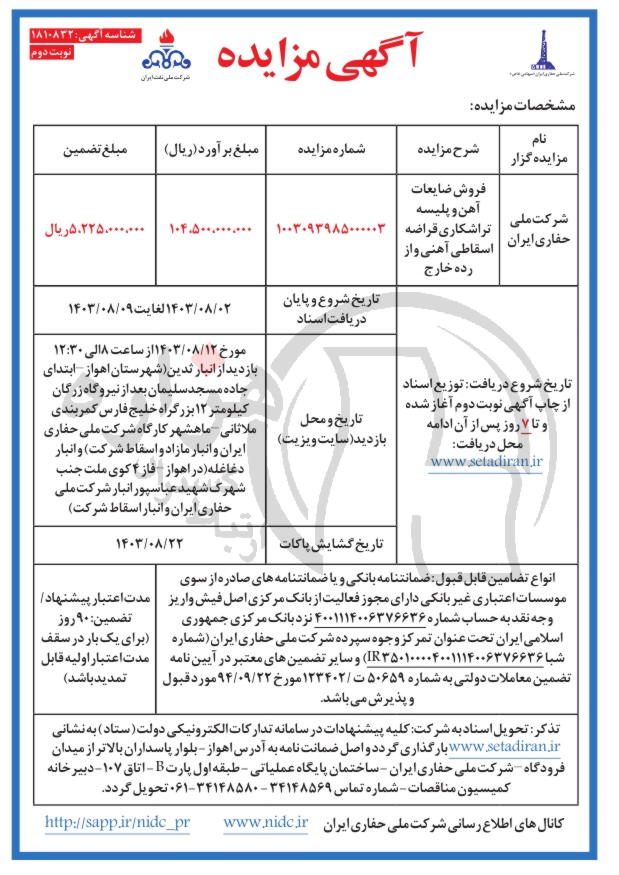 شناسه آگهی: ۱۸۱۰۸۳۲
نوبت دوم
شرکت ملی نفت ایران
آگهی مزایده
شرکت ملی حفاری ایران (سهامی خاص)
مشخصات مزایده:
نام مزایده گزار
شرح مزایده
شماره مزایده
مبلغ برآورد (ریال)
مبلغ تضمین
شرکت ملی
حفاری ایران
فروش ضایعات
آهن و پلیسه
تراشکاری قراضه
اسقاطی آهنی و از
رده خارج
۱۰۰۳۰۹۳۹۸۵۰۰۰۰۰۳
۱۰۴،۵۰۰،۰۰۰،۰۰۰
۵،۲۲۵،۰۰۰،۰۰۰ ریال
تاریخ شروع دریافت: توزیع اسناد
از چاپ آگهی نوبت دوم آغاز شده
و تا ۷ روز پس از آن ادامه
محل دریافت:
www.setadiran.ir
تاریخ شروع و پایان
دریافت اسناد
۱۴۰۳/۰۸/۰۲ لغایت ۱۴۰۳/۰۸/۰۹
تاریخ و محل
بازدید (سایت ویزیت)
مورخ ۱۴۰۳/۰۸/۱۲ از ساعت ۸ الی ۱۲:۳۰
بازدید از انبار تدین (شهرستان اهواز – ابتدای
جاده مسجدسلیمان بعد از نیروگاه زرگان
کیلومتر ۱۲ بزرگراه خلیج فارس کمربندی
ملاثانی – ماهشهر کارگاه شرکت ملی حفاری
ایران و انبار مازاد و اسقاط شرکت) و انبار
دغاغله (در اهواز – فاز ۴ کوی ملت جنب
شهرک شهید عباسپور انبار شرکت ملی
حفاری ایران و انبار اسقاط شرکت)
تاریخ گشایش پاکات
۱۴۰۳/۰۸/۲۲
انواع تضامین قابل قبول: ضمانتنامه بانکی و یا ضمانتنامه های صادره از سوی
موسسات اعتباری غیر بانکی دارای مجوز فعالیت از بانک مرکزی اصل فیش واریز
وجه نقد به حساب شماره ۴۰۰۱۱۱۴۰۰۶۳۷۶۶۳۶ نزد بانک مرکزی جمهوری
اسلامی ایران تحت عنوان تمرکز وجوه سپرده شرکت ملی حفاری ایران (شماره
شبا IR۳۵۰۱۰۰۰۰۴۰۰۱۱۱۴۰۰۶۳۷۶۶۳۶) و سایر تضمین های معتبر در آیین نامه
تضمین معاملات دولتی به شماره ۵۰۶۵۹ ت/۱۲۳۴۰۲ مورخ ۹۴/۰۹/۲۲ مورد قبول
و پذیرش می باشد.
مدت اعتبار پیشنهاد/
تضمین: ۹۰ روز
(برای یک بار در سقف
مدت اعتبار اولیه قابل
تمدید باشد)
تذکر: تحویل اسناد به شرکت: کلیه پیشنهادات در سامانه تدارکات الکترونیکی دولت (ستاد) به نشانی
www.setadiran.ir بارگذاری گردد و اصل ضمانت نامه به آدرس اهواز - بلوار پاسداران بالاتر از میدان
فرودگاه – شرکت ملی حفاری ایران - ساختمان پایگاه عملیاتی - طبقه اول پارت B - اتاق ۱۰۷ - دبیرخانه
کمیسیون مناقصات - شماره تماس ۳۴۱۴۸۵۶۹ - ۳۴۱۴۸۵۸۰-۰۶۱ تحویل گردد.
کانال های اطلاع رسانی شرکت ملی حفاری ایران www.nidc.ir http://sapp.ir/nidc_pr